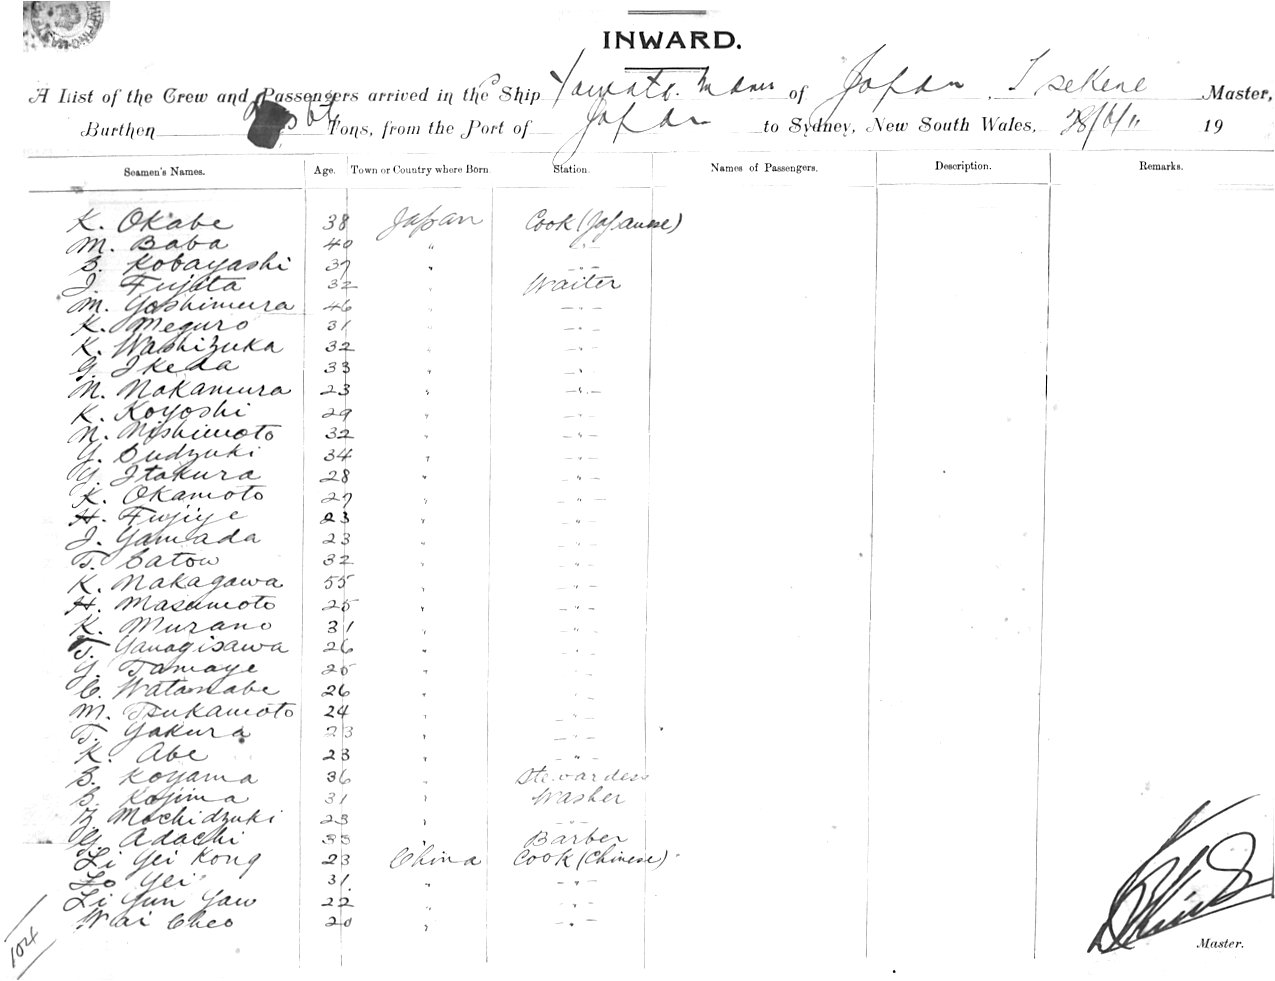 INWARD.
A List of the Crew and Passengers arrived in the Ship Yawata Maru of Japan, Sekine Master,
Burthen Tons, from the Port of Japan to Sydney, New South Wales, 28/6/11 19
Seamen's Names. Age. Town or Country where Born. Station. Names of Passengers. Description. Remarks.
K. Okabe 38 Japan Cook (Japanese)
M. Baba 40 " - " -
S. Kobayashi 37 " - " -
J. Fujita 32 " Waiter
M. Yoshimura 46 " - " -
K. Meguro 31 " - " -
K. Washizuka 32 " - " -
G. Ikeda 33 " - " -
N. Nakamura 23 " - " -
K. Koyoshi 29 " - " -
N. Nishimoto 32 " - " -
Y. Sudzuki 34 " - " -
Y. Itakura 28 " - " -
K. Okamoto 27 " - " -
H. Fujiye 23 " - " -
J. Yamada 23 " - " -
T. Satow 32 " - " -
K. Nakagawa 55 " - " -
H. Masumoto 25 " - " -
K. Murano 31 " - " -
T. Yanagisawa 26 " - " -
Y. Tamaye 25 " - " -
C. Watanabe 26 " - " -
M. Tsukamoto 24 " - " -
T. Yakura 23 " - " -
K. Abe 23 " - " -
S. Koyama 36 " Stewardess
S. Kojima 31 " Washer
Z. Mochidzuki 23 " - " -
Y. Adachi 33 " Barber
Li Yei Kong 23 China Cook (Chinese)
Lo Yei 31 " - " -
Li Yun Yaw 22 " - " -
Wai Cheo 20 " - " -
104
Master.